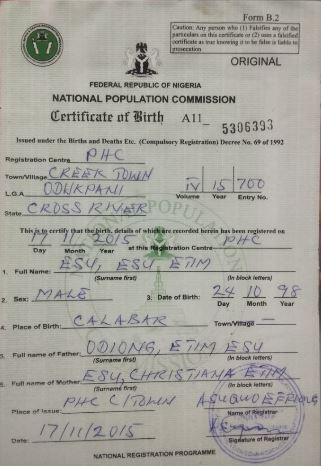 Form B.2
Caution: Any person who (1) Falsifies any of the
particulars on this certificate or (2) uses a falsified
certificate as true knowing it to be false is liable to
prosecution
ORIGINAL
FEDERAL REPUBLIC OF NIGERIA
NATIONAL POPULATION COMMISSION
Certificate of Birth A11_ 5306393
Issued under the Births and Deaths Etc. (Compulsory Registration) Decree No. 69 of 1992
Registration Centre PHC
Town/Village CREEK TOWN
L.G.A ODUKPANI IV 15 700
Volume Year Entry No.
State CROSS RIVER
This is to certify that the birth, details of which are recorded herein has been registered on
17 11 2015 at this Registration Centre PHC
Day Month Year
1. Full Name: ESU, ESU ETIM
(Surname first) (In block letters)
2. Sex: MALE 3. Date of Birth: 24 10 98
Day Month Year
4. Place of Birth: CALABAR Town/Village —
5. Full name of Father: ODIONG, ETIM ESU
(Surname first) (In block letters)
6. Full name of Mother: ESU, CHRISTIANA ETIM
(Surname first) (In block letters)
Place of Issue: PHC C/TOWN
Name of Registrar
Date: 17/11/2015 Signature of Registrar
NATIONAL REGISTRATION PROGRAMME